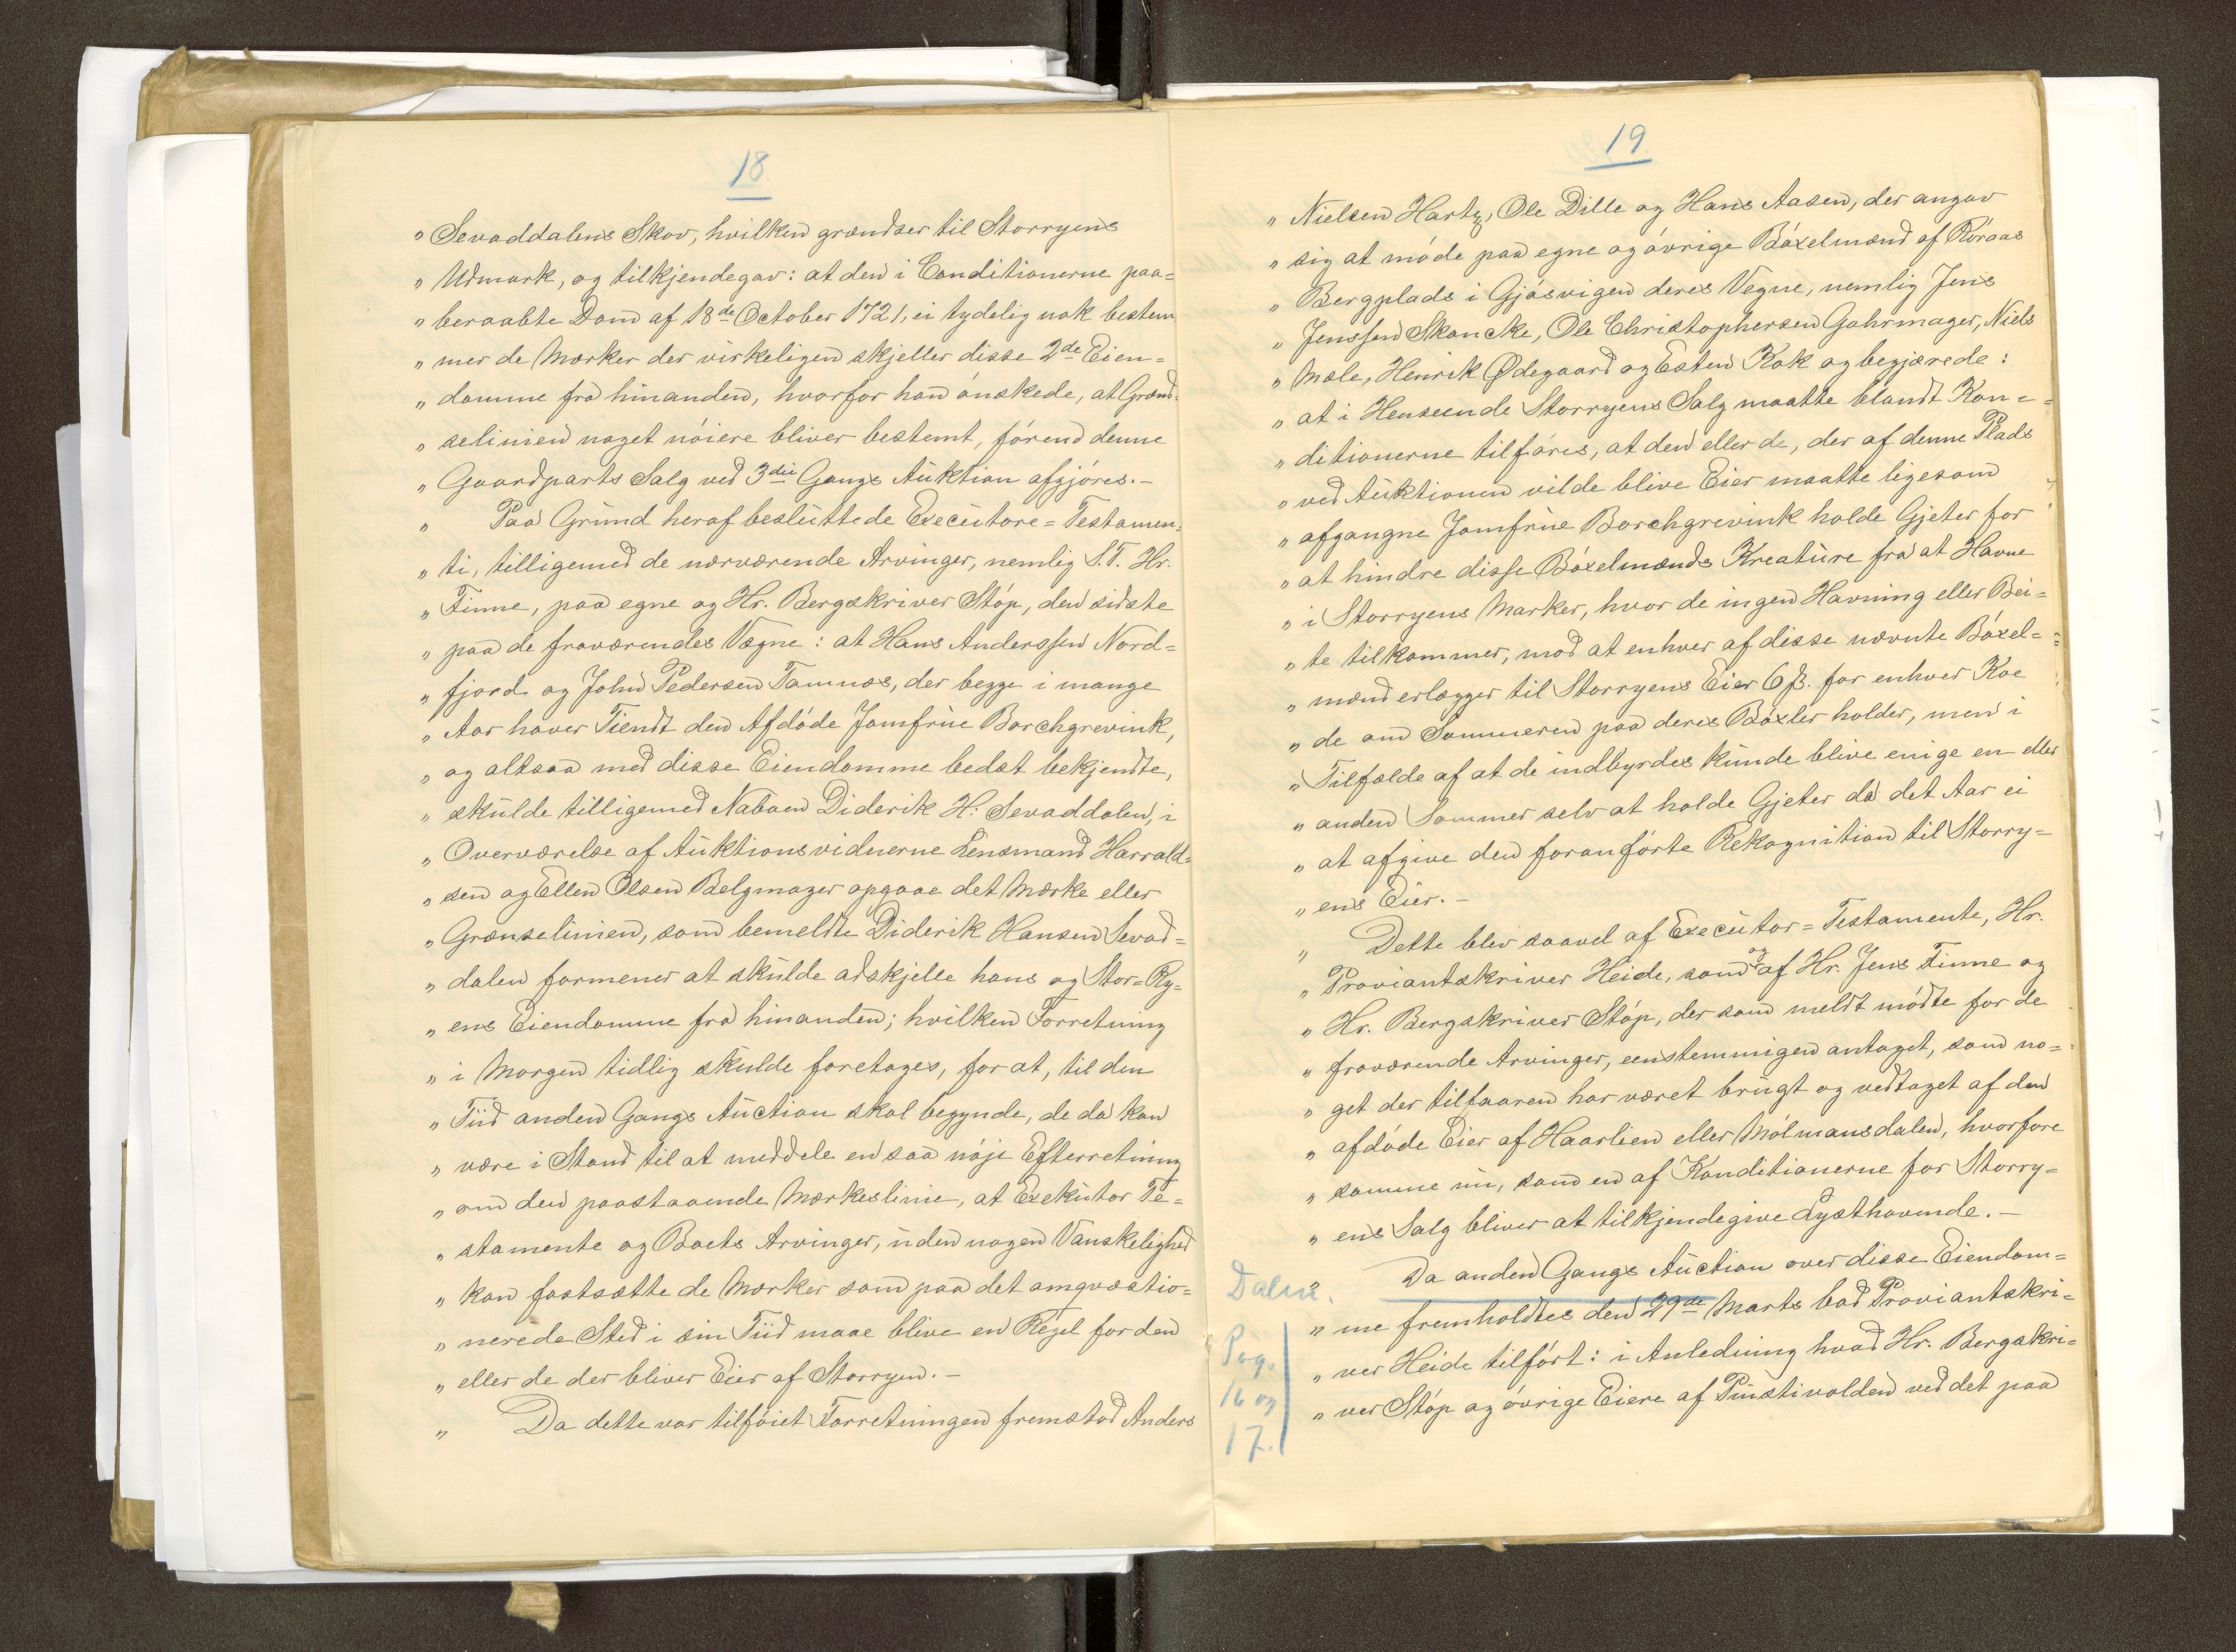 18.
„ Sevaddalens Skov, hvilken grændser til Storryens
„ Udmark, og tilkjendegav: at den i Conditionerne paa=
„ beraabte Dom af 18de October 1721, ei tydelig nok bestem
„ mer de Mærker der virkeligen skjeller disse 2de Eien=
„ domme fra hinanden, hvorfor han ønskede, at Grænd=
„ selinien noget nøiere bliver bestemt, førend denne
„ Gaardparts Salg ved 3die Gangs Auktion afgjøres.-
„ Paa Grund heraf besluttede Executore=Testamen=
„ ti, tilligemed de nærværende Arvinger, nemlig S.T. Hr.
„ Finne, paa egne og Hr. Bergskriver Støp, den sidste
„ paa de fraværendes Vegne: at Hans Anderssen Nord=
„ fjord og John Pedersen Tamnæs, der begge i mange
„ Aar haver Tiendt den Afdøde Jomfrue Borchgrevink,
„ og altsaa med disse Eiendomme bedst bekjendte,
„ skulde tilligemed Naboen Diderik H: Sevaddalen, i
„ Overværelse af Auktionsvidnerne Lensmand Harrald=
„ sen og Ellen Olsen Belgmager opgaae det Mærke eller
„ Grænselinien, som bemeldte Diderik Hansen Sevad=
„ dalen formener at skulde adskjelle hans og Stor=Ry=
„ ens Eiendomme fra hinanden; hvilken Forretning
„ i Morgen tidlig skulde foretages, for at, til den
„ Tiid anden Gangs Auction skal begynde, de da kan
„ være i Stand til at meddele en saa nøje Efterretning
„ om den paastaaende Mærkeslinie, at Exekutor Te=
„ stamente og Boets Arvinger, uden nogen Vanskelighed
„ kan fastsætte de Mærker som paa det omqvæstio=
„ nerede Sted i sin Tiid maae blive en Regel for den
„ eller de der bliver Eier af Storryen.-
„ Da dette var tilføiet Forretningen fremstod Anders
19.
„ Nielsen Hartz, Ole Dille og Hans Aasen, der angav
„ sig at møde paa egne og øvrige Bøxelmænd af Røraas
„ Bergplads i Gjøsvigen deres Vegne, nemlig Jens
„ Jenssen Skancke, Ole Christophersen Gahrmager, Niels
„ Mæle, Henrik Ødegaard og Esten Kok og begjærede:
„ at i Henseende Storryens Salg maatte blandt Kon=
„ ditionerne tilføres, at den eller de, der af denne Plads
„ ved Auktionen vilde blive Eier maatte ligesom
„ afgangne Jomfrue Borchgrevink holde Gjeter for
„ at hindre disse Bøxelmænds Kreature fra at Havne
„ i Storryens Marker, hvor de ingen Havning eller Bei=
„ te tilkommer, mod at enhver af disse nævnte Bøxel=
„ mænd erlægger til Storryens Eier 6 ß. for enhver Koe
„ de om Sommeren paa deres Bøxler holder, men i
„ Tilfælde af at de indbyrdes kunde blive enige en eller
„ anden Sommer selv at holde Gjeter da det Aar ei
„ at afgive den foranførte Rekognition til Storry=
„ ens Eier.-
„ Dette blev saavel af Executor=Testamente, Hr.
„ Proviantskriver Heide, som og af Hr. Jens Finne og
„ Hr. Bergskriver Støp, der som meldt mødte for de
„ fraværende Arvinger, eenstemmigen antaget, som no=
„ get der tilfaaren har været brugt og vedtaget af den
„ afdøde Eier af Haarlien eller Mølmansdalen, hvorfore
„ samme nu, som en af Konditionerne for Storry=
„ ens Salg bliver at tilkjendegive Lysthavende.-
Da anden Gangs Auction over disse Eiendom=
„ me fremholdtes den 29de Marts bad Proviantskri=
„ ver Heide tilført: i Anledning hvad Hr. Bergskri=
„ ver Støp og øvrige Eiere af Pinstivolden ved det paa
Pag.
16 og
17.